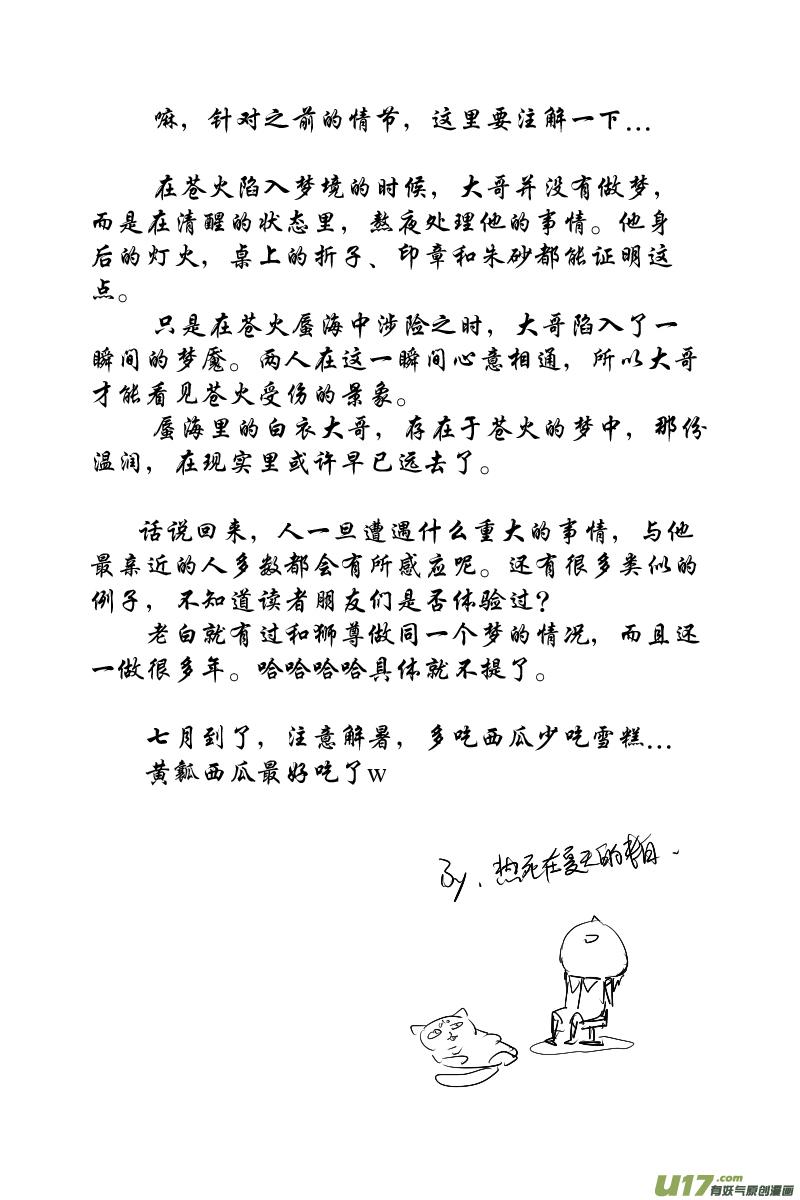 嘛，针对之前的情节，这里要注解一下...
在苍火陷入梦境的时候，大哥并没有做梦，
而是在清醒的状态里，熬夜处理他的事情。他身
后的灯火，桌上的折子、印章和朱砂都能证明这
点。
只是在苍火蜃海中涉险之时，大哥陷入了一
瞬间的梦魇。两人在这一瞬间心意相通，所以大哥
才能看见苍火受伤的景象。
蜃海里的白衣大哥，存在于苍火的梦中，那份
温润，在现实里或许早已远去了。
话说回来，人一旦遭遇什么重大的事情，与他
最亲近的人多数都会有所感应呢。还有很多类似的
例子，不知道读者朋友们是否体验过？
老白就有过和狮尊做同一个梦的情况，而且还
一做很多年。哈哈哈哈具体就不提了。
七月到了，注意解暑，多吃西瓜少吃雪糕...
黄瓤西瓜最好吃了w
By. 热死在夏天的老白.
U17.com
有妖气原创漫画